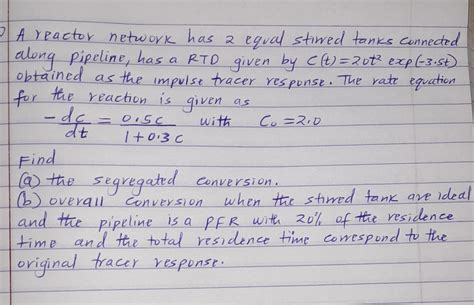 A reactor network has 2 equal stirred tanks connected
along pipeline, has a RTD given by C(t) = 20t² exp(-3.5t)
obtained as the impulse tracer response. The rate equation
for the reaction is given as
-dc/dt = 0.5c/1+0.3c with C₀ = 2.0
Find
(a) the segregated conversion.
(b) overall conversion when the stirred tank are ideal
and the pipeline is a PFR with 20% of the residence
time and the total residence time correspond to the
original tracer response.